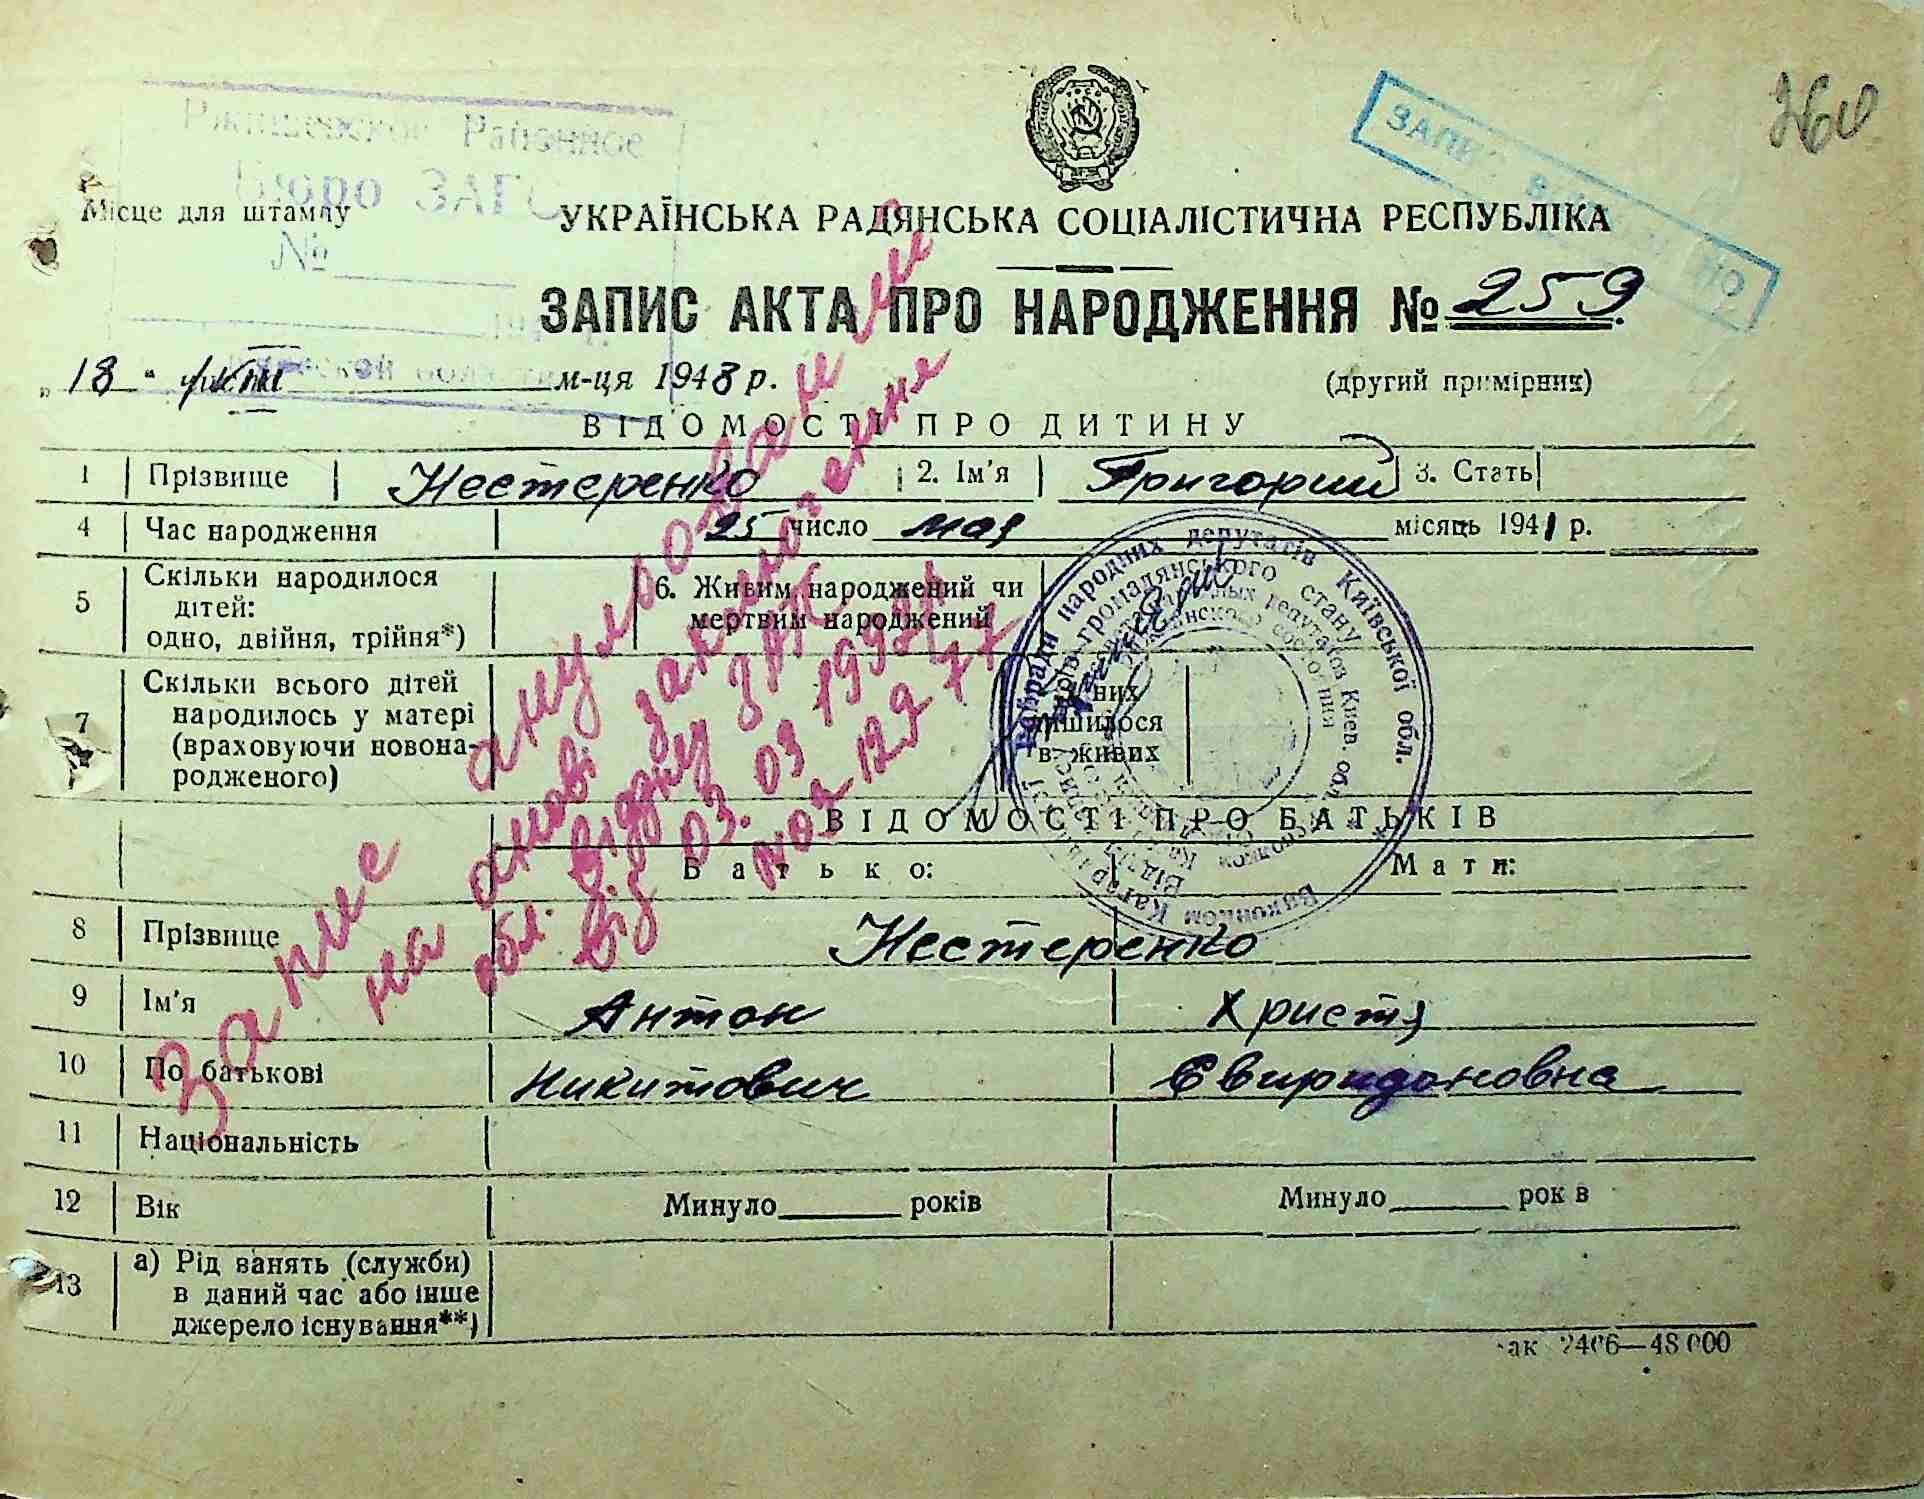 760
Ржищевское Районное
Бюро ЗАГС
№
Місце для штампу
УКРАЇНСЬКА РАДЯНСЬКА СОЦІАЛІСТИЧНА РЕСПУБЛІКА
ЗАПИС АКТА ПРО НАРОДЖЕННЯ № 259
„18“ м-ця 1948 р.
(другий примірник)
ВІДОМОСТІ ПРО ДИТИНУ
1 Прізвище Нестеренко 2. Ім'я Григорий 3. Стать
4 Час народження 25 число мая місяць 1941 р.
5 Скільки народилося дітей: одно, двійня, трійня*)
6. Живим народжений чи мертвим народжений
7 Скільки всього дітей народилось у матері (враховуючи новонародженого)
них лишилося в живих
ВІДОМОСТІ ПРО БАТЬКІВ
Батько: Мати:
8 Прізвище Нестеренко
9 Ім'я Антон Христя
10 По батькові Никитович Свиридоновна
11 Національність
12 Вік Минуло років Минуло рок в
13 а) Рід занять (служби) в даний час або інше джерело існування**)
Запис анульований
на основі заключення
обл. відділу ЗАГС
від 03.03 1992р
ак 2406—48 000